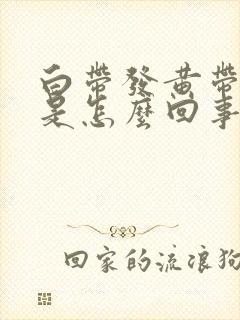 白帶發黃帶
是怎麼回事
回家的流浪狗